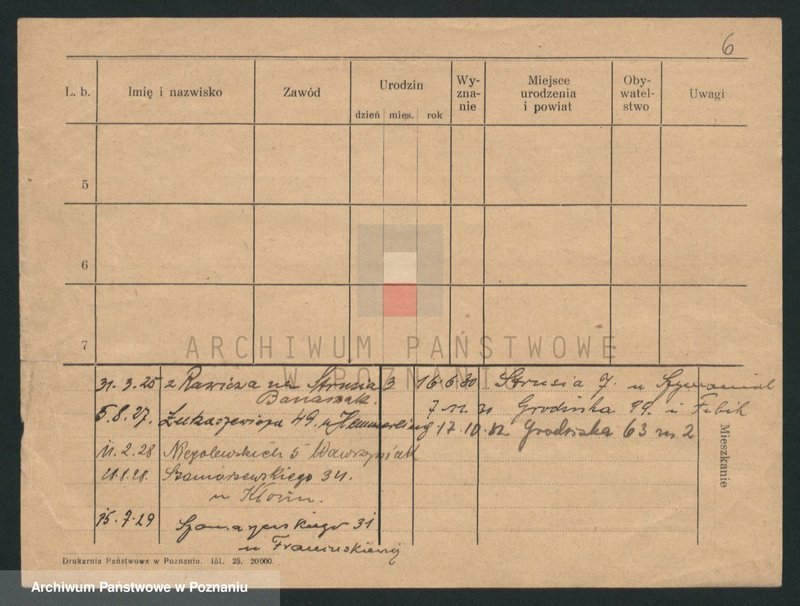 6
L. b. Imię i nazwisko Zawód Urodzin Wy-zna-nie Miejsce urodzenia i powiat Oby-watel-stwo Uwagi
dzień mies. rok
5
6
7
ARCHIWUM PAŃSTWOWE
W POZNANIU
31.3.25 z Rawicza na Strusia 3
Banaszak.
5.8.27. Łukaszewicza 49. u Hemmerling
11.2.28 Niegolewskich 5 Wawrzyniak
Szamarzewskiego 34.
u
15.7.29 Szamarzewskiego 31
u
16.6.30 Strusia 7. u
7.11.31 Grodziska 99. u
17.10.32 Grodziska 63 m 2
Mieszkanie
Drukarnia Państwowa w Poznaniu. 151. 25. 20000.
Archiwum Państwowe w Poznaniu